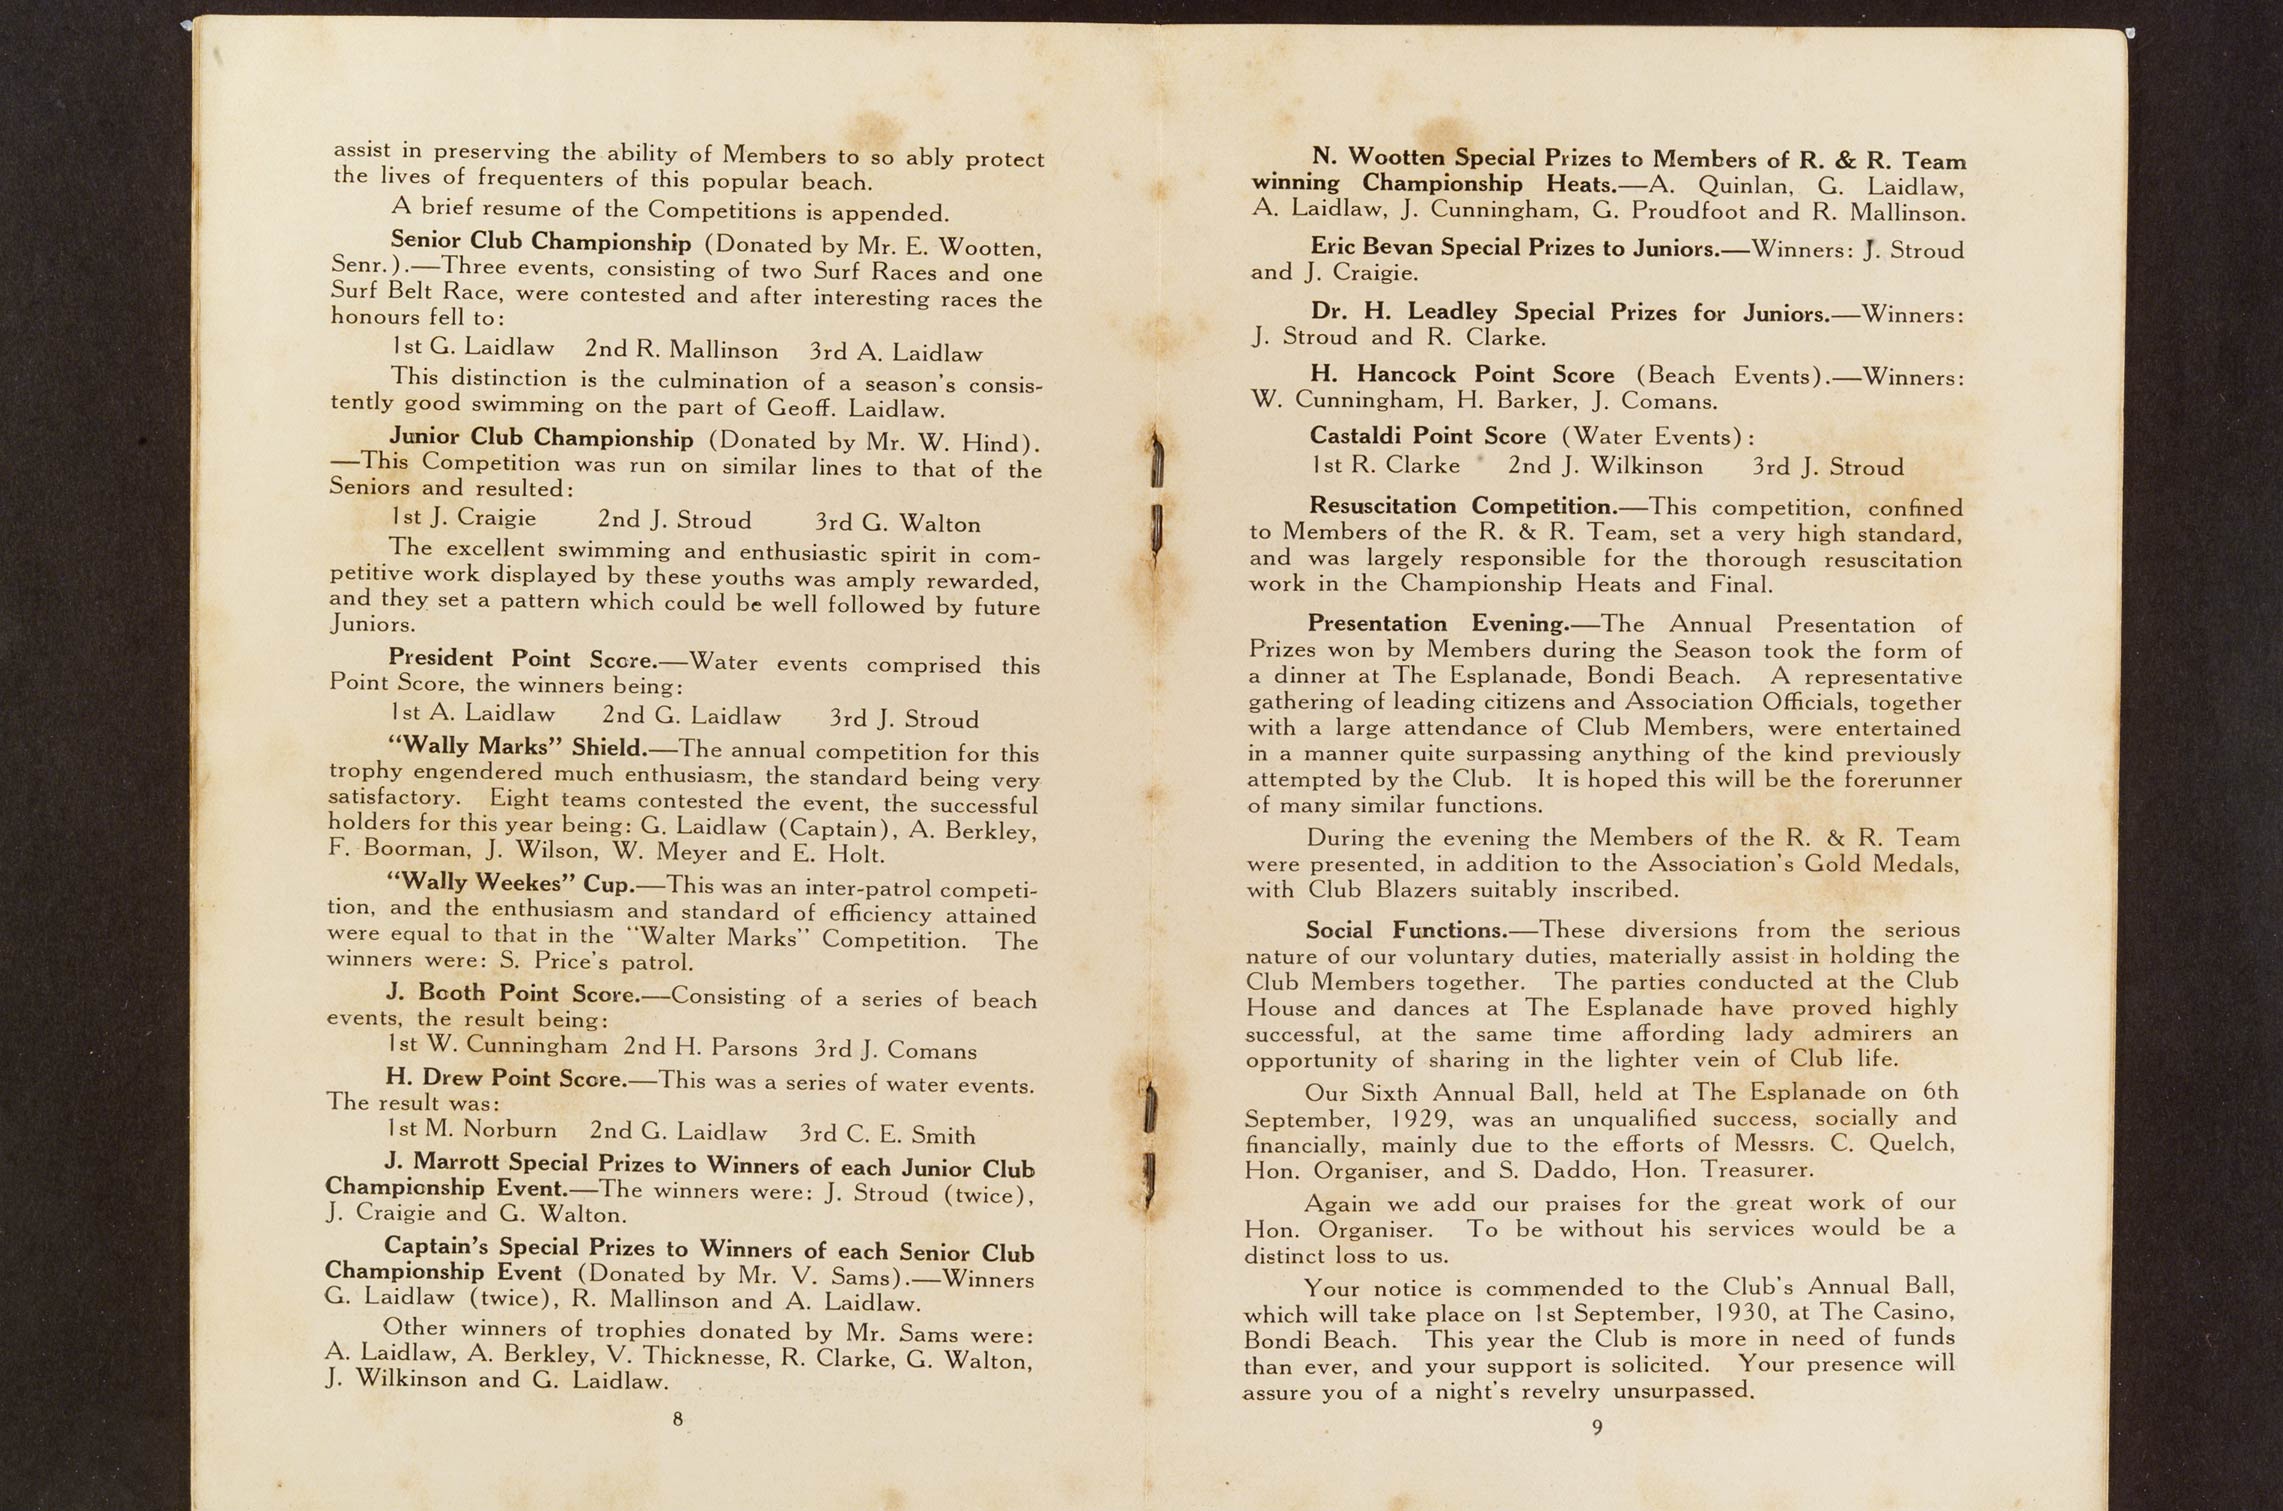 assist in preserving the ability of Members to so ably protect
the lives of frequenters of this popular beach.
A brief resume of the Competitions is appended.
Senior Club Championship (Donated by Mr. E. Wootten,
Senr.).—Three events, consisting of two Surf Races and one
Surf Belt Race, were contested and after interesting races the
honours fell to:
1st G. Laidlaw 2nd R. Mallinson 3rd A. Laidlaw
This distinction is the culmination of a season's consis-
tently good swimming on the part of Geoff. Laidlaw.
Junior Club Championship (Donated by Mr. W. Hind).
—This Competition was run on similar lines to that of the
Seniors and resulted:
1st J. Craigie 2nd J. Stroud 3rd G. Walton
The excellent swimming and enthusiastic spirit in com-
petitive work displayed by these youths was amply rewarded,
and they set a pattern which could be well followed by future
Juniors.
President Point Score.—Water events comprised this
Point Score, the winners being:
1st A. Laidlaw 2nd G. Laidlaw 3rd J. Stroud
"Wally Marks" Shield.—The annual competition for this
trophy engendered much enthusiasm, the standard being very
satisfactory. Eight teams contested the event, the successful
holders for this year being: G. Laidlaw (Captain), A. Berkley,
F. Boorman, J. Wilson, W. Meyer and E. Holt.
"Wally Weekes" Cup.—This was an inter-patrol competi-
tion, and the enthusiasm and standard of efficiency attained
were equal to that in the "Walter Marks" Competition. The
winners were: S. Price's patrol.
J. Booth Point Score.—Consisting of a series of beach
events, the result being:
1st W. Cunningham 2nd H. Parsons 3rd J. Comans
H. Drew Point Score.—This was a series of water events.
The result was:
1st M. Norburn 2nd G. Laidlaw 3rd C. E. Smith
J. Marrott Special Prizes to Winners of each Junior Club
Championship Event.—The winners were: J. Stroud (twice),
J. Craigie and G. Walton.
Captain's Special Prizes to Winners of each Senior Club
Championship Event (Donated by Mr. V. Sams).—Winners
G. Laidlaw (twice), R. Mallinson and A. Laidlaw.
Other winners of trophies donated by Mr. Sams were:
A. Laidlaw, A. Berkley, V. Thicknesse, R. Clarke, G. Walton,
J. Wilkinson and G. Laidlaw.
8
N. Wootten Special Prizes to Members of R. & R. Team
winning Championship Heats.—A. Quinlan, G. Laidlaw,
A. Laidlaw, J. Cunningham, G. Proudfoot and R. Mallinson.
Eric Bevan Special Prizes to Juniors.—Winners: J. Stroud
and J. Craigie.
Dr. H. Leadley Special Prizes for Juniors.—Winners:
J. Stroud and R. Clarke.
H. Hancock Point Score (Beach Events).—Winners:
W. Cunningham, H. Barker, J. Comans.
Castaldi Point Score (Water Events):
1st R. Clarke 2nd J. Wilkinson 3rd J. Stroud
Resuscitation Competition.—This competition, confined
to Members of the R. & R. Team, set a very high standard,
and was largely responsible for the thorough resuscitation
work in the Championship Heats and Final.
Presentation Evening.—The Annual Presentation of
Prizes won by Members during the Season took the form of
a dinner at The Esplanade, Bondi Beach. A representative
gathering of leading citizens and Association Officials, together
with a large attendance of Club Members, were entertained
in a manner quite surpassing anything of the kind previously
attempted by the Club. It is hoped this will be the forerunner
of many similar functions.
During the evening the Members of the R. & R. Team
were presented, in addition to the Association's Gold Medals,
with Club Blazers suitably inscribed.
Social Functions.—These diversions from the serious
nature of our voluntary duties, materially assist in holding the
Club Members together. The parties conducted at the Club
House and dances at The Esplanade have proved highly
successful, at the same time affording lady admirers an
opportunity of sharing in the lighter vein of Club life.
Our Sixth Annual Ball, held at The Esplanade on 6th
September, 1929, was an unqualified success, socially and
financially, mainly due to the efforts of Messrs. C. Quelch,
Hon. Organiser, and S. Daddo, Hon. Treasurer.
Again we add our praises for the great work of our
Hon. Organiser. To be without his services would be a
distinct loss to us.
Your notice is commended to the Club's Annual Ball,
which will take place on 1st September, 1930, at The Casino,
Bondi Beach. This year the Club is more in need of funds
than ever, and your support is solicited. Your presence will
assure you of a night's revelry unsurpassed.
9